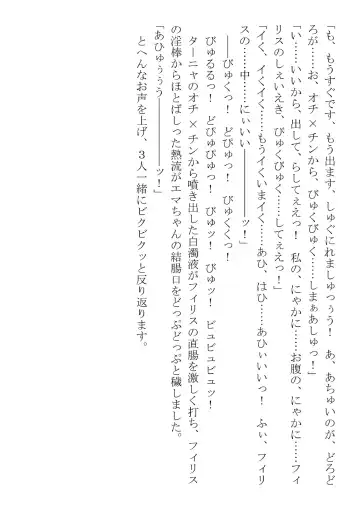 「も、もうすぐです、もう出ます、しゅぐにれましゅっぅう！　あ、あちゅいのが、どろど
ろが……お、オチ×チンから、びゅくびゅく……しまぁあしゅっ！」
「い……いいから、出して、らしてぇえっ！　私の、にゃかに……お腹の、にゃかに……フィ
リスのしぇいえき、びゅくびゅく……してぇえっ！」
「イく、イくイく……もうイくいまイく……あひ、はひ……あひぃいいっ！　ふぃ、フィリ
スの……中……にぃいい――――ッ！」
　――びゅくっ！　どびゅっ！　びゅくくっ！
　びゅるるっ！　どびゅびゅっ！　びゅッ！　びゅッ！　ビュビュビュッ！
　ターニャのオチ×チンから噴き出した白濁液がフィリスの直腸を激しく打ち、フィリス
の淫棒からほとばしった熱流がエマちゃんの結腸口をどっぷどっぷと穢しました。
「あひゅぅぅう――――ッ！」
　とへんなお声を上げ、３人一緒にビクビクッと反り返ります。